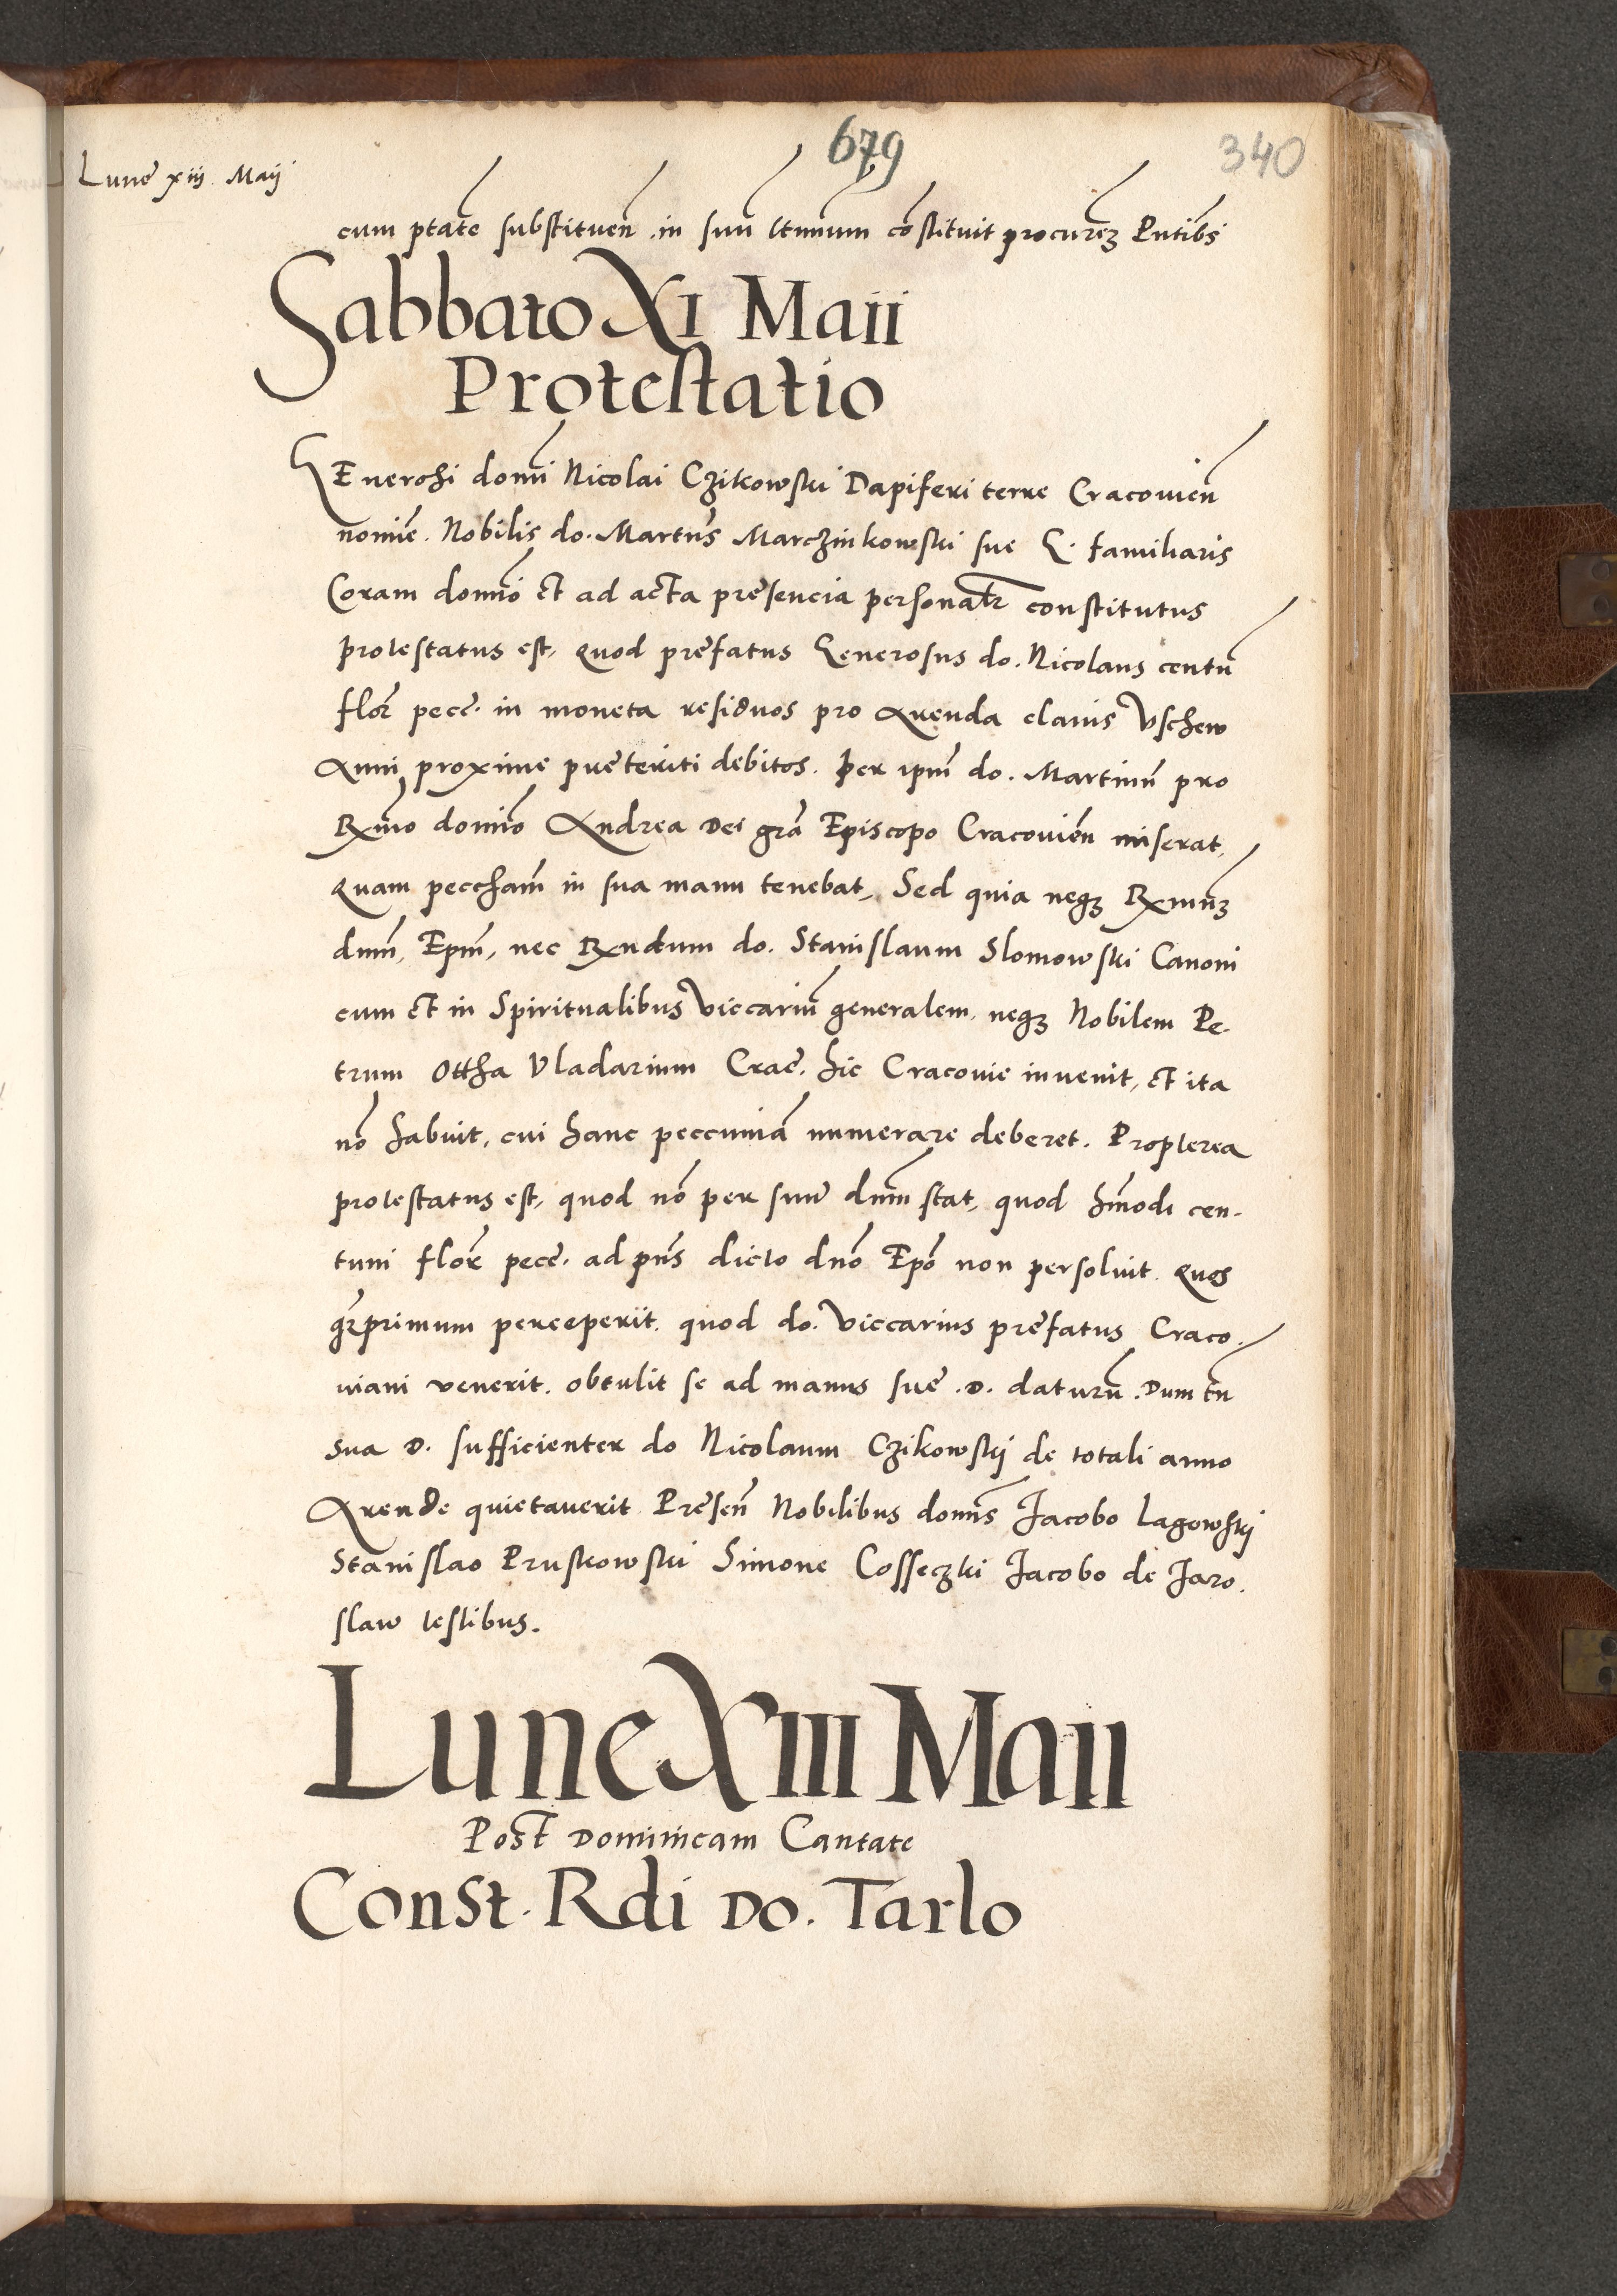 679
340
Lune xiii. Maij
cum ptãte substituen̄ in suū lt̄imum cōstituit procurēʒ Pn̄tibs̄
Sabbato XI Maii
Protestatio
GEnerosi domī Nicolai Czikowski Dapiferi terre Cracovien̄
nomīe. Nobilis do. Martn̄s Marczinkowski sue G. familiaris
Coram domīo et ad acta presencia personalr̄ constitutus
protestatus est, quod prefatus Generosus do. Nicolaus centū
flor̄ pecc̄. in moneta residuos pro Arenda clavis Uschew
Anni proxime preteriti debitos. per ipm̄ do. Martinū pro
Rx̄mo domīo Andrea Dei grā Episcopo Cracovien̄ miserat,
quam peccham̄ in sua manu tenebat, Sed quia neqʒ Rx̄mūʒ
dnm̄, Epm̄, nec Rx̄ndum do. Stanislaum Slomowski Canoni
cum et in Spiritualibus Viccariū generalem, neqʒ Nobilem Pe-
trum Ottha Vladarium Crac̄. hic Cracovie invenit, et ita
nō habuit, cui hanc peccuniā numerare deberet. Propterea
protestatus est, quod nō per suū dnm̄ stat, quod hm̄odi cen-
tum flor̄ pecc̄. ad pn̄s dicto dnō Epō non persolvit. quos
qʒprimum perceperit. quod do. Viccarius prefatus Craco-
viam venerit. obtulit se ad manus sue .D. daturū. Dum tn̄
sua D. sufficienter do Nicolaum Czikowskj de totali anno
Arende quietaverit Presen̄ Nobilibus domīs Jacobo Lagowskj
Stanislao Pruskowski Simone Cosseczki Jacobo de Jaro.
slaw testibus.
Lune XIII Maii
Post Dominicam Cantate
Const. Rdi Do. Tarlo